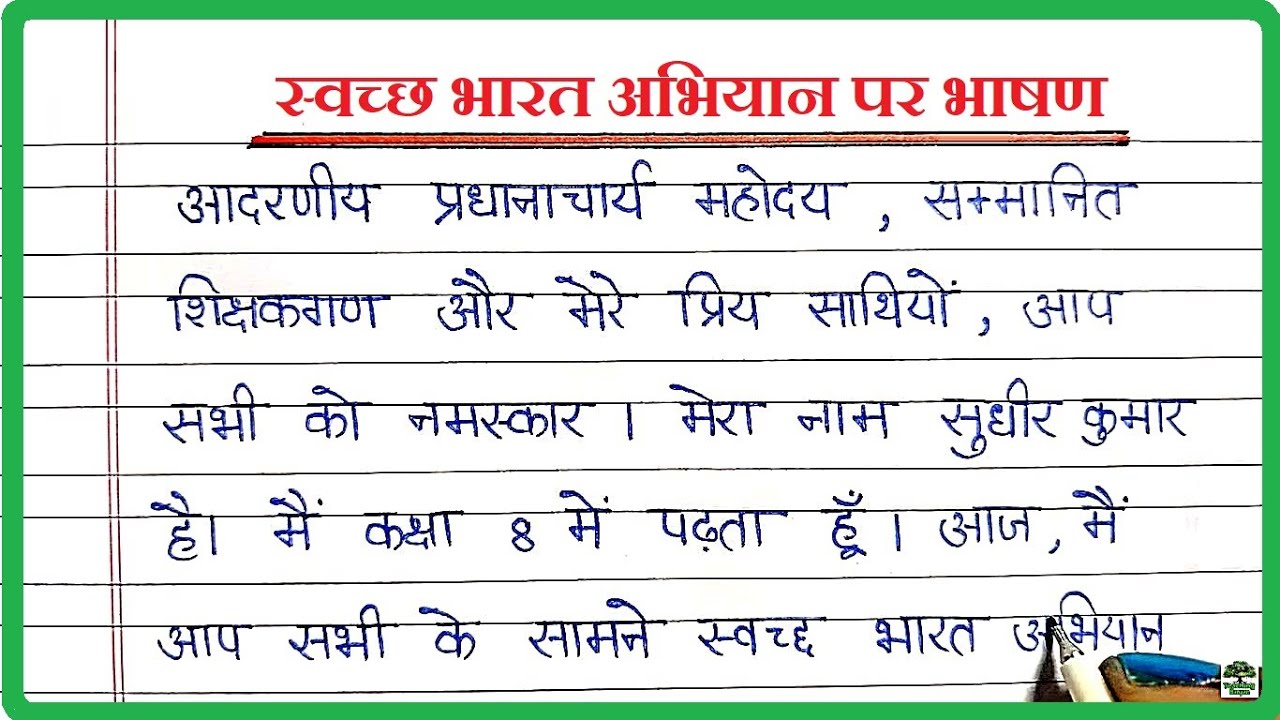 स्वच्छ भारत अभियान पर भाषण
आदरणीय प्रधानाचार्य महोदय , सम्मानित
शिक्षकगण और मेरे प्रिय साथियों , आप
सभी को नमस्कार । मेरा नाम सुधीर कुमार
है। मैं कक्षा 8 में पढ़ता हूँ । आज , मैं
आप सभी के सामने स्वच्छ भारत अभियान